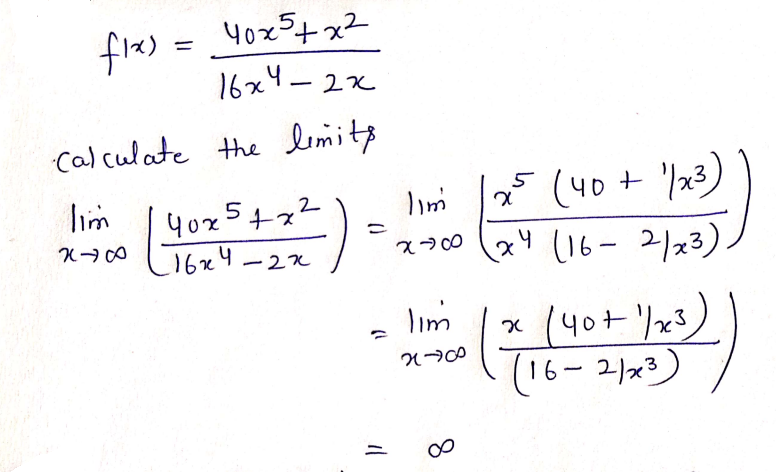 f(x) = (40x⁵ + x²)/(16x⁴ − 2x)
Calculate the limits
lim x→∞ ((40x⁵ + x²)/(16x⁴ − 2x)) = lim x→∞ ((x⁵ (40 + 1/x³))/(x⁴ (16 − 2/x³)))
= lim x→∞ ((x (40 + 1/x³))/((16 − 2/x³)))
= ∞